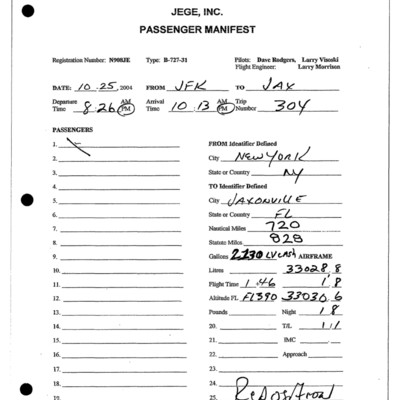 JEGE, INC.
PASSENGER MANIFEST
Registration Number: N908JE Type: B-727-31 Pilots: Dave Rodgers, Larry Visoski
Flight Engineer: Larry Morrison
DATE: 10.25, 2004 FROM JFK TO JAX
Departure Time 8:26 AM PM Arrival Time 10:13 AM PM Trip Number 304
PASSENGERS
1.
2.
3.
4.
5.
6.
7.
8.
9.
10.
11.
12.
13.
14.
15.
16.
17.
18.
19.
FROM Identifier Defined
City NEW YORK
State or Country NY
TO Identifier Defined
City JAXONVILLE
State or Country FL
Nautical Miles 720
Statute Miles 828
Gallons 2230 LV AIRFRAME
Liters 33028.8
Flight Time 1.46 1.8
Altitude FL FL390 33030.6
Pounds Night 1.8
20. T/L 1/1
21. IMC
22. Approach
23.
24.
25. Reposition